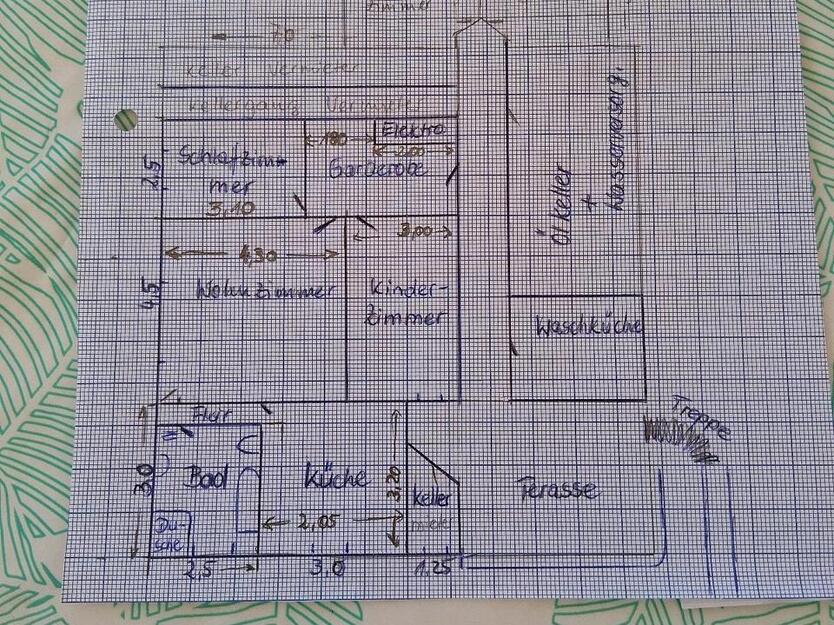 zimmer
7,0
Keller Vermieter
Kellergang Vermieter
Elektro
1,80
2,00
Schlafzim-
mer
3,10
Garderobe
2,5
Öl Keller
+
Wasserversorg.
4,30
3,00
4,5
Wohnzimmer
Kinder-
zimmer
Waschküche
Flur
Treppe
3,0
Bad
Küche
3,20
Keller
mieter
Terasse
Du-
sche
2,05
2,5
3,0
1,25